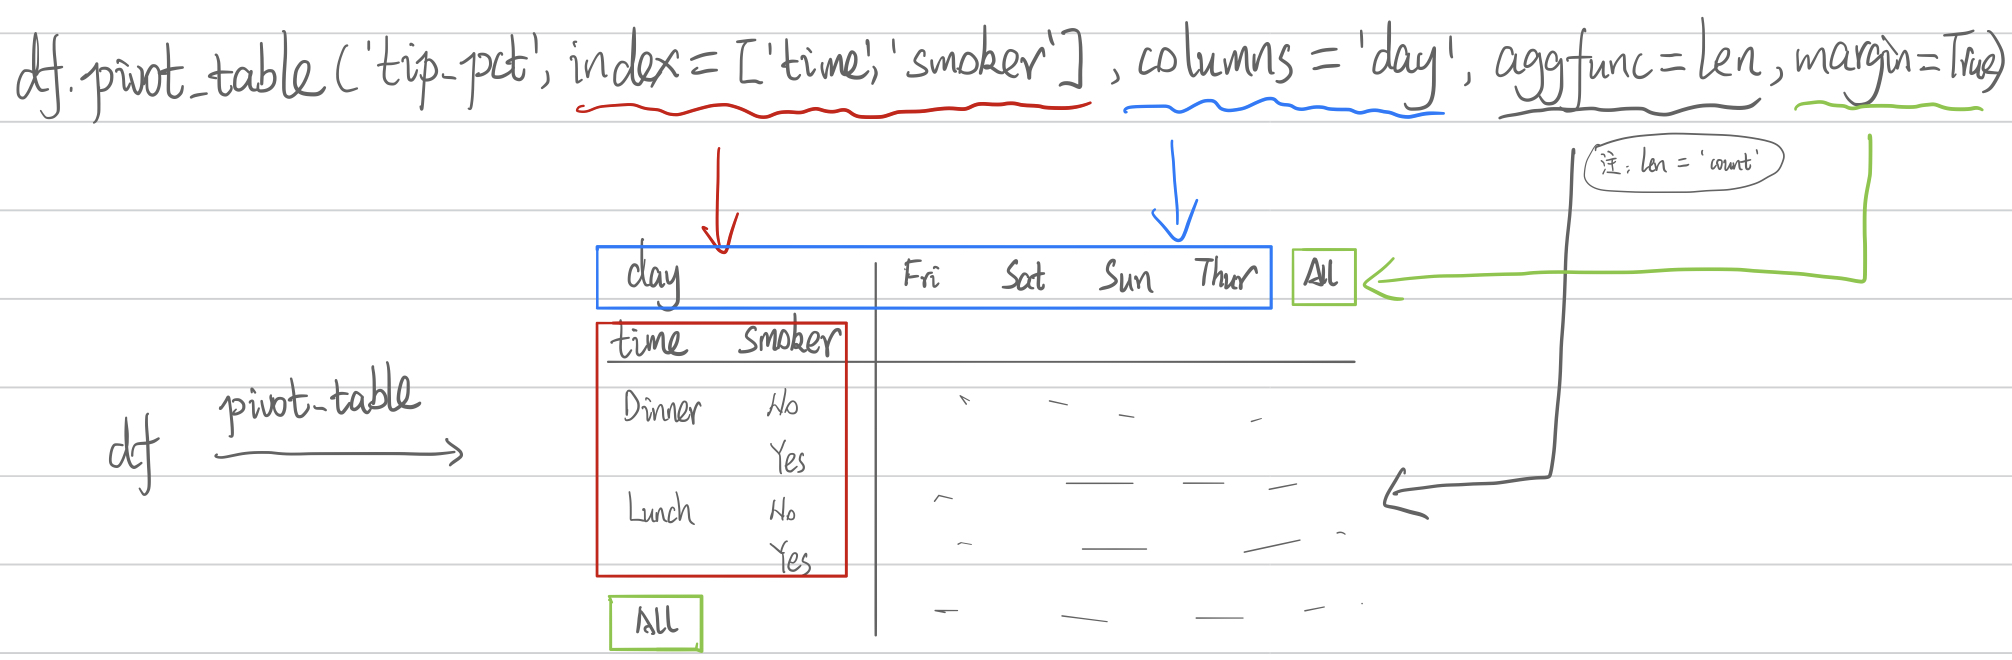 df.pivot_table('tip_pct', index=['time','smoker'], columns='day', aggfunc=len, margin=True)
注: len = 'count'
day Fri Sat Sun Thur All
time smoker
pivot_table
Dinner No
df
Yes
Lunch No
Yes
All